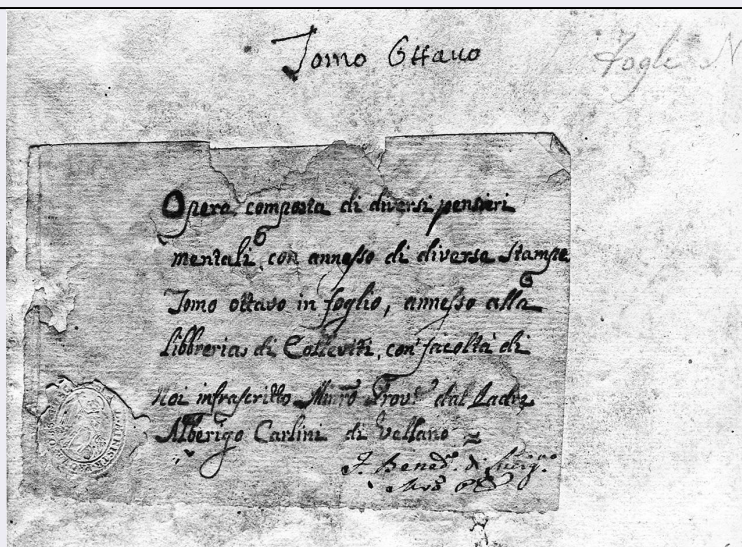 Tomo Ottavo
Fogli N
Opera composta di diversi pensieri
mentali, con annesso di diverse stampe
Tomo ottavo in foglio, annesso alla
libbreria di Colleviti, con facoltà di
Noi infrascritto Minrõ Provle dal Padre
Alberigo Carlini di Vellano
F. Bened. di